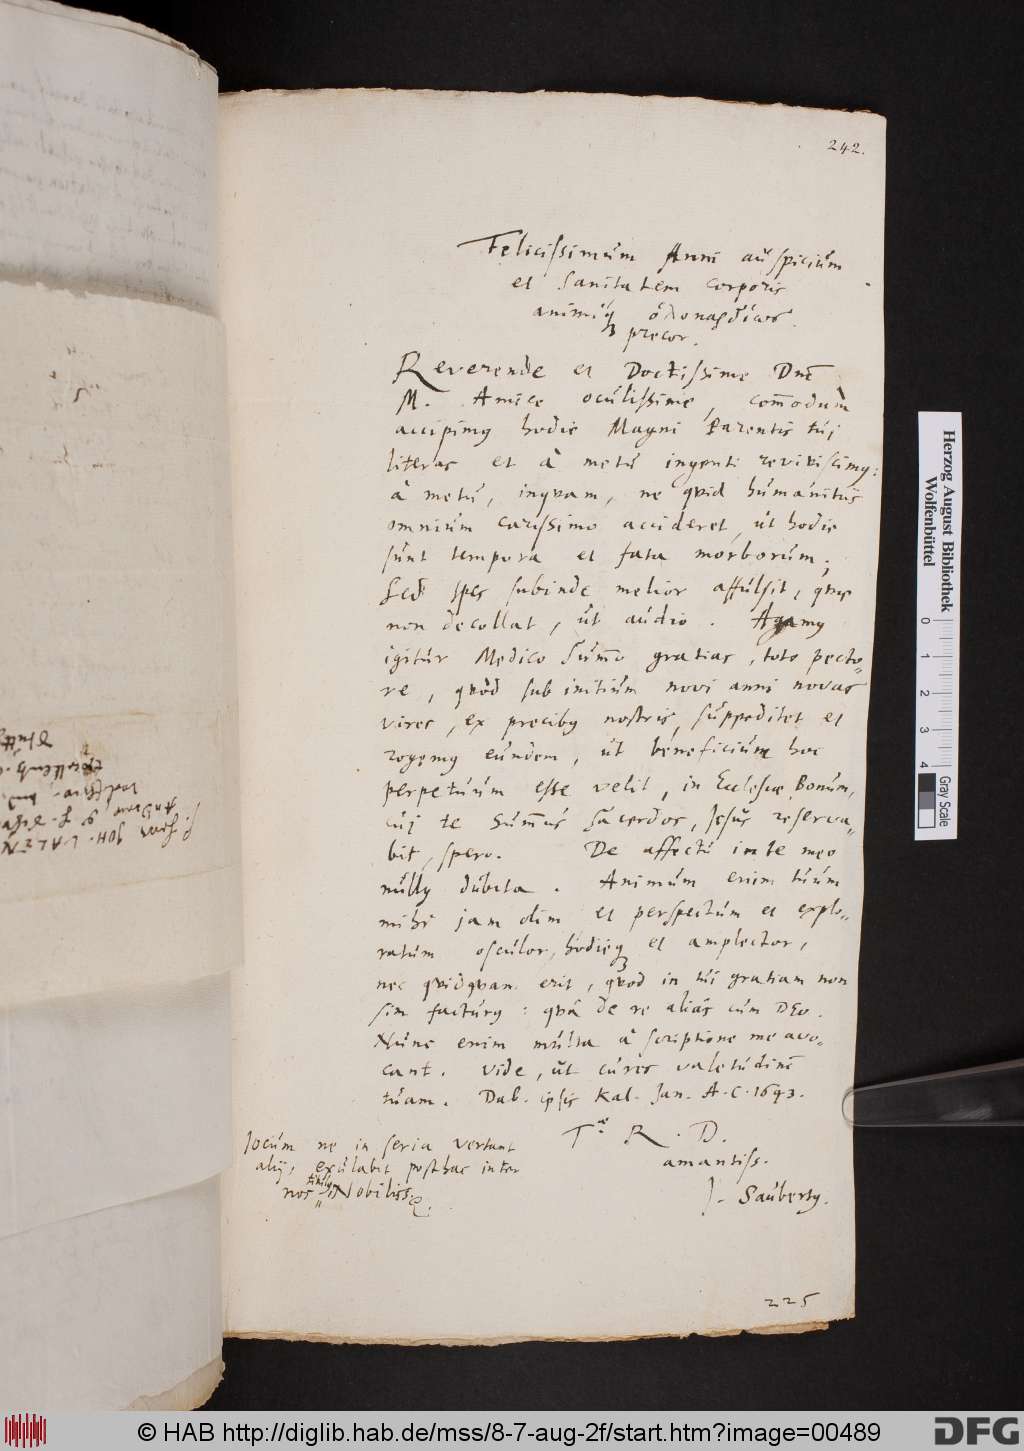 242.
Felicissimum Anni auspicium
et sanitatem corporis
animiq́
precor.
Reverende et Doctissime Dne
M. Amice oculissime, com̄odum
accipimus hodie Magni Parentis tui
literas et à metu ingenti reviviscimus:
à metu, inqvam, ne qvid humanitus
omnium carissimo accideret, ut hodie
sunt tempora et fata morborum;
Sed spes subinde melior affulsit, qvae
non decollat, ut audio. Agamus
igitur Medico Sum̄o gratias, toto pecto=
re, qvòd sub initium novi anni novas
vires, ex precibus nostris, suppeditet et
rogemus eundem, ut beneficium hoc
perpetuum esse velit, in Ecclesiae Bonum,
cui te Sum̄us Sacerdos, Jesus reserva=
bit, spero. De affectu in te meo
nullus dubita. Animum enim tuum
mihi jam olim et perspectum et explo=
ratum osculor, hodieq́ et amplector,
nec qvidqvam erit, qvod in tui gratiam non
sim facturus: qvâ de re aliàs cum DEO.
Nunc enim multa à scriptione me avo=
cant. Vide, ut cures valetudinē
tuam. Dab. ipsis Kal. Jan. A. C. 1643.
T. R. D.
amantiss.
J. Saubertus.
Jocum ne in seria vertant
alij, exulabit posthac inter
nos titulus Nobiliss.
225
Herzog August Bibliothek
Wolfenbüttel
0 1 2 3 4
Gray Scale
© HAB http://diglib.hab.de/mss/8-7-aug-2f/start.htm?image=00489
DFG